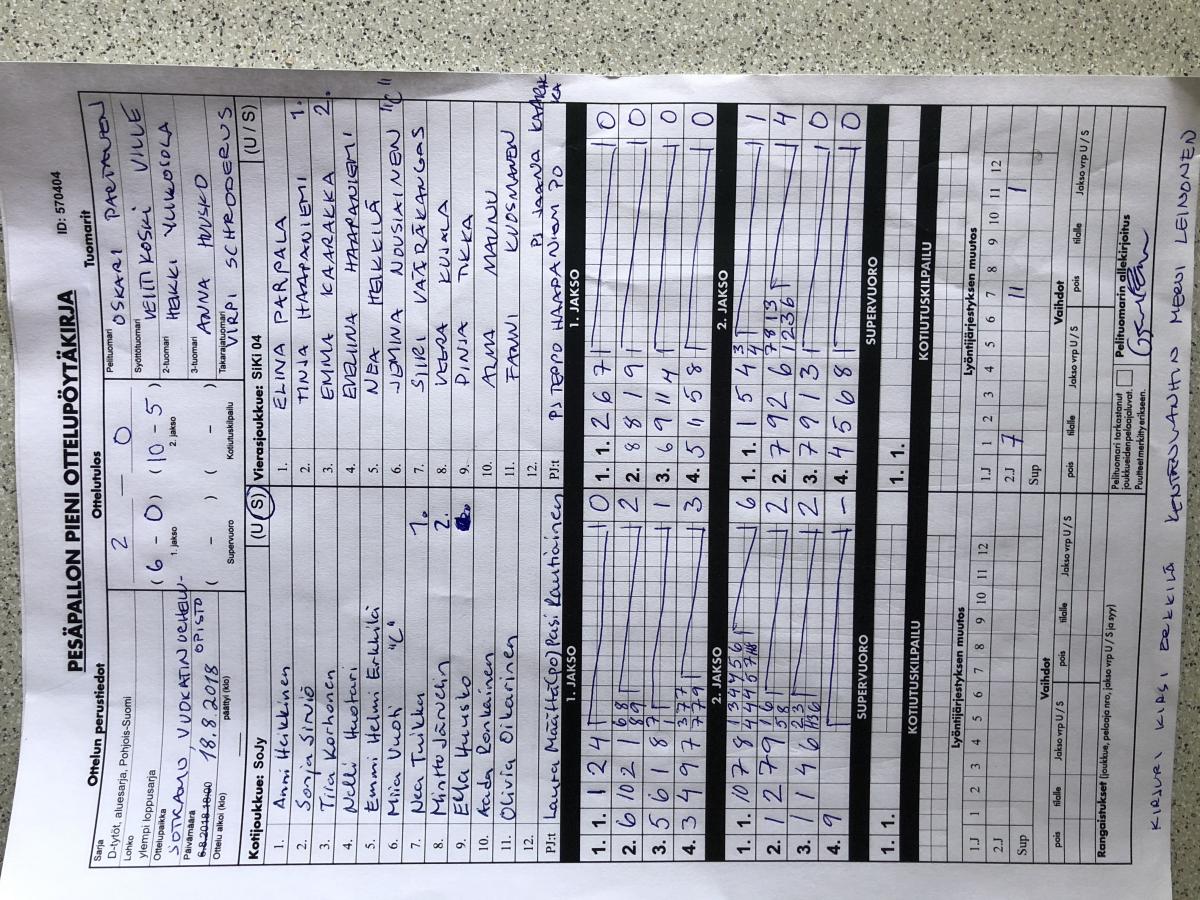 PESÄPALLON PIENI OTTELUPÖYTÄKIRJA
ID: 570404
Ottelun perustiedot
Sarja
D-tytöt, aluesarja, Pohjois-Suomi
Lohko
ylempi loppusarja
Ottelupaikka
SOTKAMO, VUOKATIN URHEILU-
OPISTO
Päivämäärä
6.8.2018 18:00 18.8.2018
Ottelu alkoi (klo)
päättyi (klo)
Ottelutulos
2 — 0
( 6 - 0 ) ( 10 - 5 )
1. jakso 2. jakso
( - ) ( - )
Supervuoro Kotiutuskilpailu
Tuomarit
Pelituomari OSKARI PARTANEN
Syöttötuomari VEHTIKOSKI VILLE
2-tuomari HEIKKI YLIKOSOLA
3-tuomari ANNA HUUSKO
Takarajatuomari VIRPI SCHRODERUS
Kotijoukkue: SoJy (U / S)
1. Anni Heikkinen
2. Sonja Sirviö
3. Tiia Korhonen
4. Nelli Huotari
5. Emmi Helmi Eerkkilä
6. Miia Vuoti "C"
7. Nea Tuikka 1.
8. Minttu Järvelin 2.
9. Ella Huusko
10. Aada Ronkainen
11. Olivia Oikarinen
12.
PJ:t Laura Määttä (po) Pasi Rautiainen
Vierasjoukkue: SiiKi 04 (U / S)
1. ELINA PARPALA
2. TINJA HAAPANIEMI 1.
3. EMMA KAARAKKA 2.
4. EVELIINA HAAPANIEMI
5. NEA HEIKKILÄ
6. JEMINA NOUSIAINEN "C"
7. SIIRI VÄÄRÄKANGAS
8. VEERA KUJALA
9. PINJA TIKKA
10. ALMA MAUNU
11. FANNI KUOSMANEN
12. PJ JAANA KAARAKKA
PJ:t PJ TEPPO HAAPANIEMI PO
1. JAKSO
1. 1. 1 2 4 0
2. 6 10 2 1 6 8 8 9 2
3. 5 6 1 8 7 1 1
4. 3 4 9 7 3 7 7 7 7 9 3
1. JAKSO
1. 1. 2 6 7 0
2. 8 8 1 9 0
3. 6 9 11 4 0
4. 5 11 5 8 0
2. JAKSO
1. 1. 10 7 8 6
2. 1 2 7 9 2
3. 1 1 4 6 2
4. 9 –
2. JAKSO
1. 1. 1 5 4 3 4 1
2. 7 9 2 6 7 8 1 3 1 2 3 6 4
3. 7 9 1 3 0
4. 4 5 6 8 0
SUPERVUORO
1. 1.
SUPERVUORO
1. 1.
KOTIUTUSKILPAILU
KOTIUTUSKILPAILU
Lyöntijärjestyksen muutos
1.J 1 2 3 4 5 6 7 8 9 10 11 12
2.J
Sup
Lyöntijärjestyksen muutos
1.J 1 2 3 4 5 6 7 8 9 10 11 12
2.J 7 11 1
Sup
Vaihdot
pois tilalle Jakso vrp U / S pois tilalle Jakso vrp U / S
Vaihdot
pois tilalle Jakso vrp U / S pois tilalle Jakso vrp U / S
Rangaistukset (joukkue, pelaaja nro, jakso vrp U / S ja syy)
Pelituomari tarkastanut
joukkueiden pelaajaluvat.
Puutteet merkitty erikseen.
Pelituomarin allekirjoitus
KIRJURI KIRSI ERKKILÄ KENTÄNVANHIN MERVI LEINONEN